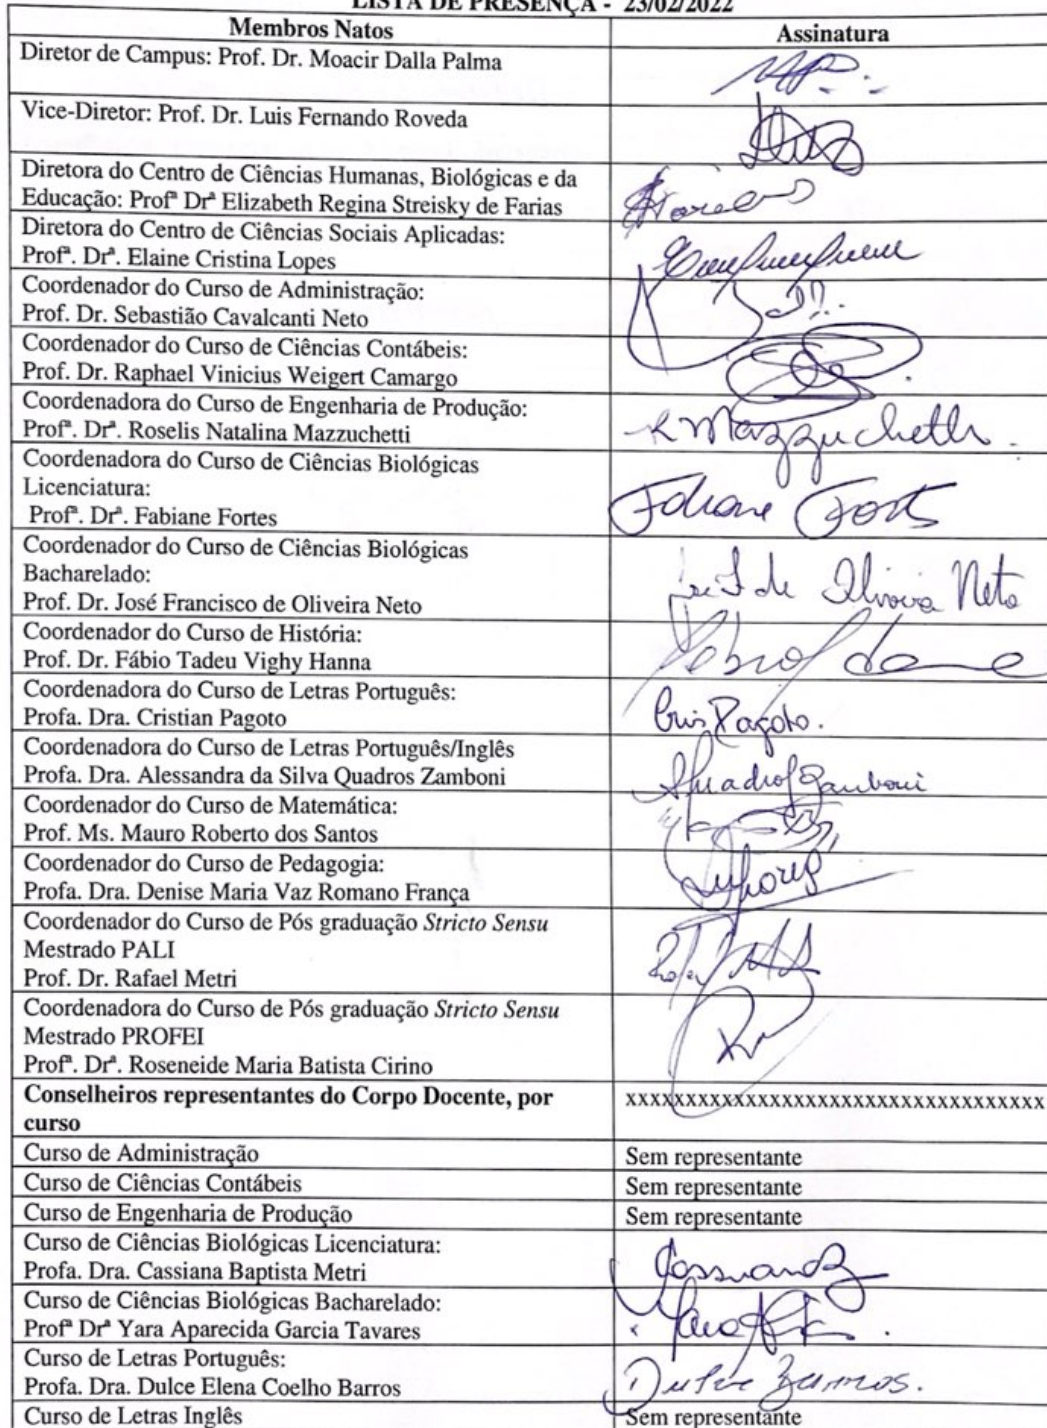 LISTA DE PRESENÇA - 23/02/2022
Membros Natos Assinatura
Diretor de Campus: Prof. Dr. Moacir Dalla Palma
Vice-Diretor: Prof. Dr. Luis Fernando Roveda
Diretora do Centro de Ciências Humanas, Biológicas e da
Educação: Profª Drª Elizabeth Regina Streisky de Farias
Diretora do Centro de Ciências Sociais Aplicadas:
Profª. Drª. Elaine Cristina Lopes
Coordenador do Curso de Administração:
Prof. Dr. Sebastião Cavalcanti Neto
Coordenador do Curso de Ciências Contábeis:
Prof. Dr. Raphael Vinicius Weigert Camargo
Coordenadora do Curso de Engenharia de Produção:
Profª. Drª. Roselis Natalina Mazzuchetti R Mazzuchetti.
Coordenadora do Curso de Ciências Biológicas
Licenciatura:
Profª. Drª. Fabiane Fortes Fabiane Fortes
Coordenador do Curso de Ciências Biológicas
Bacharelado:
Prof. Dr. José Francisco de Oliveira Neto de Oliveira Neto
Coordenador do Curso de História:
Prof. Dr. Fábio Tadeu Vighy Hanna
Coordenadora do Curso de Letras Português:
Profa. Dra. Cristian Pagoto Cris Pagoto.
Coordenadora do Curso de Letras Português/Inglês
Profa. Dra. Alessandra da Silva Quadros Zamboni AQuadros Zamboni
Coordenador do Curso de Matemática:
Prof. Ms. Mauro Roberto dos Santos
Coordenador do Curso de Pedagogia:
Profa. Dra. Denise Maria Vaz Romano França
Coordenador do Curso de Pós graduação Stricto Sensu
Mestrado PALI
Prof. Dr. Rafael Metri
Coordenadora do Curso de Pós graduação Stricto Sensu
Mestrado PROFEI
Profª Drª. Roseneide Maria Batista Cirino
Conselheiros representantes do Corpo Docente, por xxxxxxxxxxxxxxxxxxxxxxxxxxxxxxxxxxx
curso
Curso de Administração Sem representante
Curso de Ciências Contábeis Sem representante
Curso de Engenharia de Produção Sem representante
Curso de Ciências Biológicas Licenciatura:
Profa. Dra. Cassiana Baptista Metri
Curso de Ciências Biológicas Bacharelado:
Profª Drª Yara Aparecida Garcia Tavares
Curso de Letras Português:
Profa. Dra. Dulce Elena Coelho Barros Dulce Barros.
Curso de Letras Inglês Sem representante